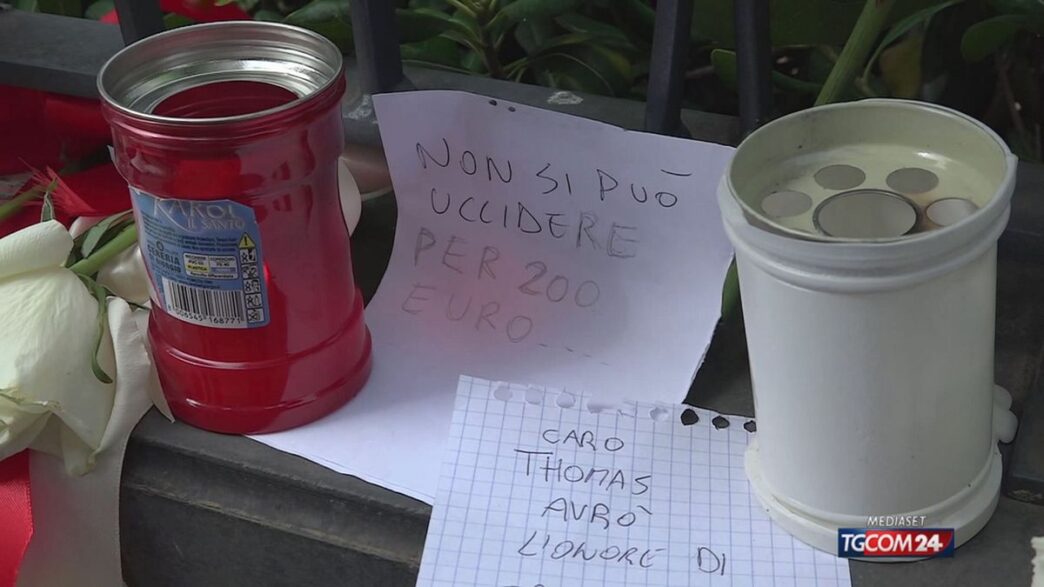 NON SI PUÒ
UCCIDERE
PER 200
EURO....
CARO
THOMAS
AVRÒ
L'ONORE DI
KAROL
IL SANTO
CERERIA
8006545168771
MEDIASET
TGCOM24